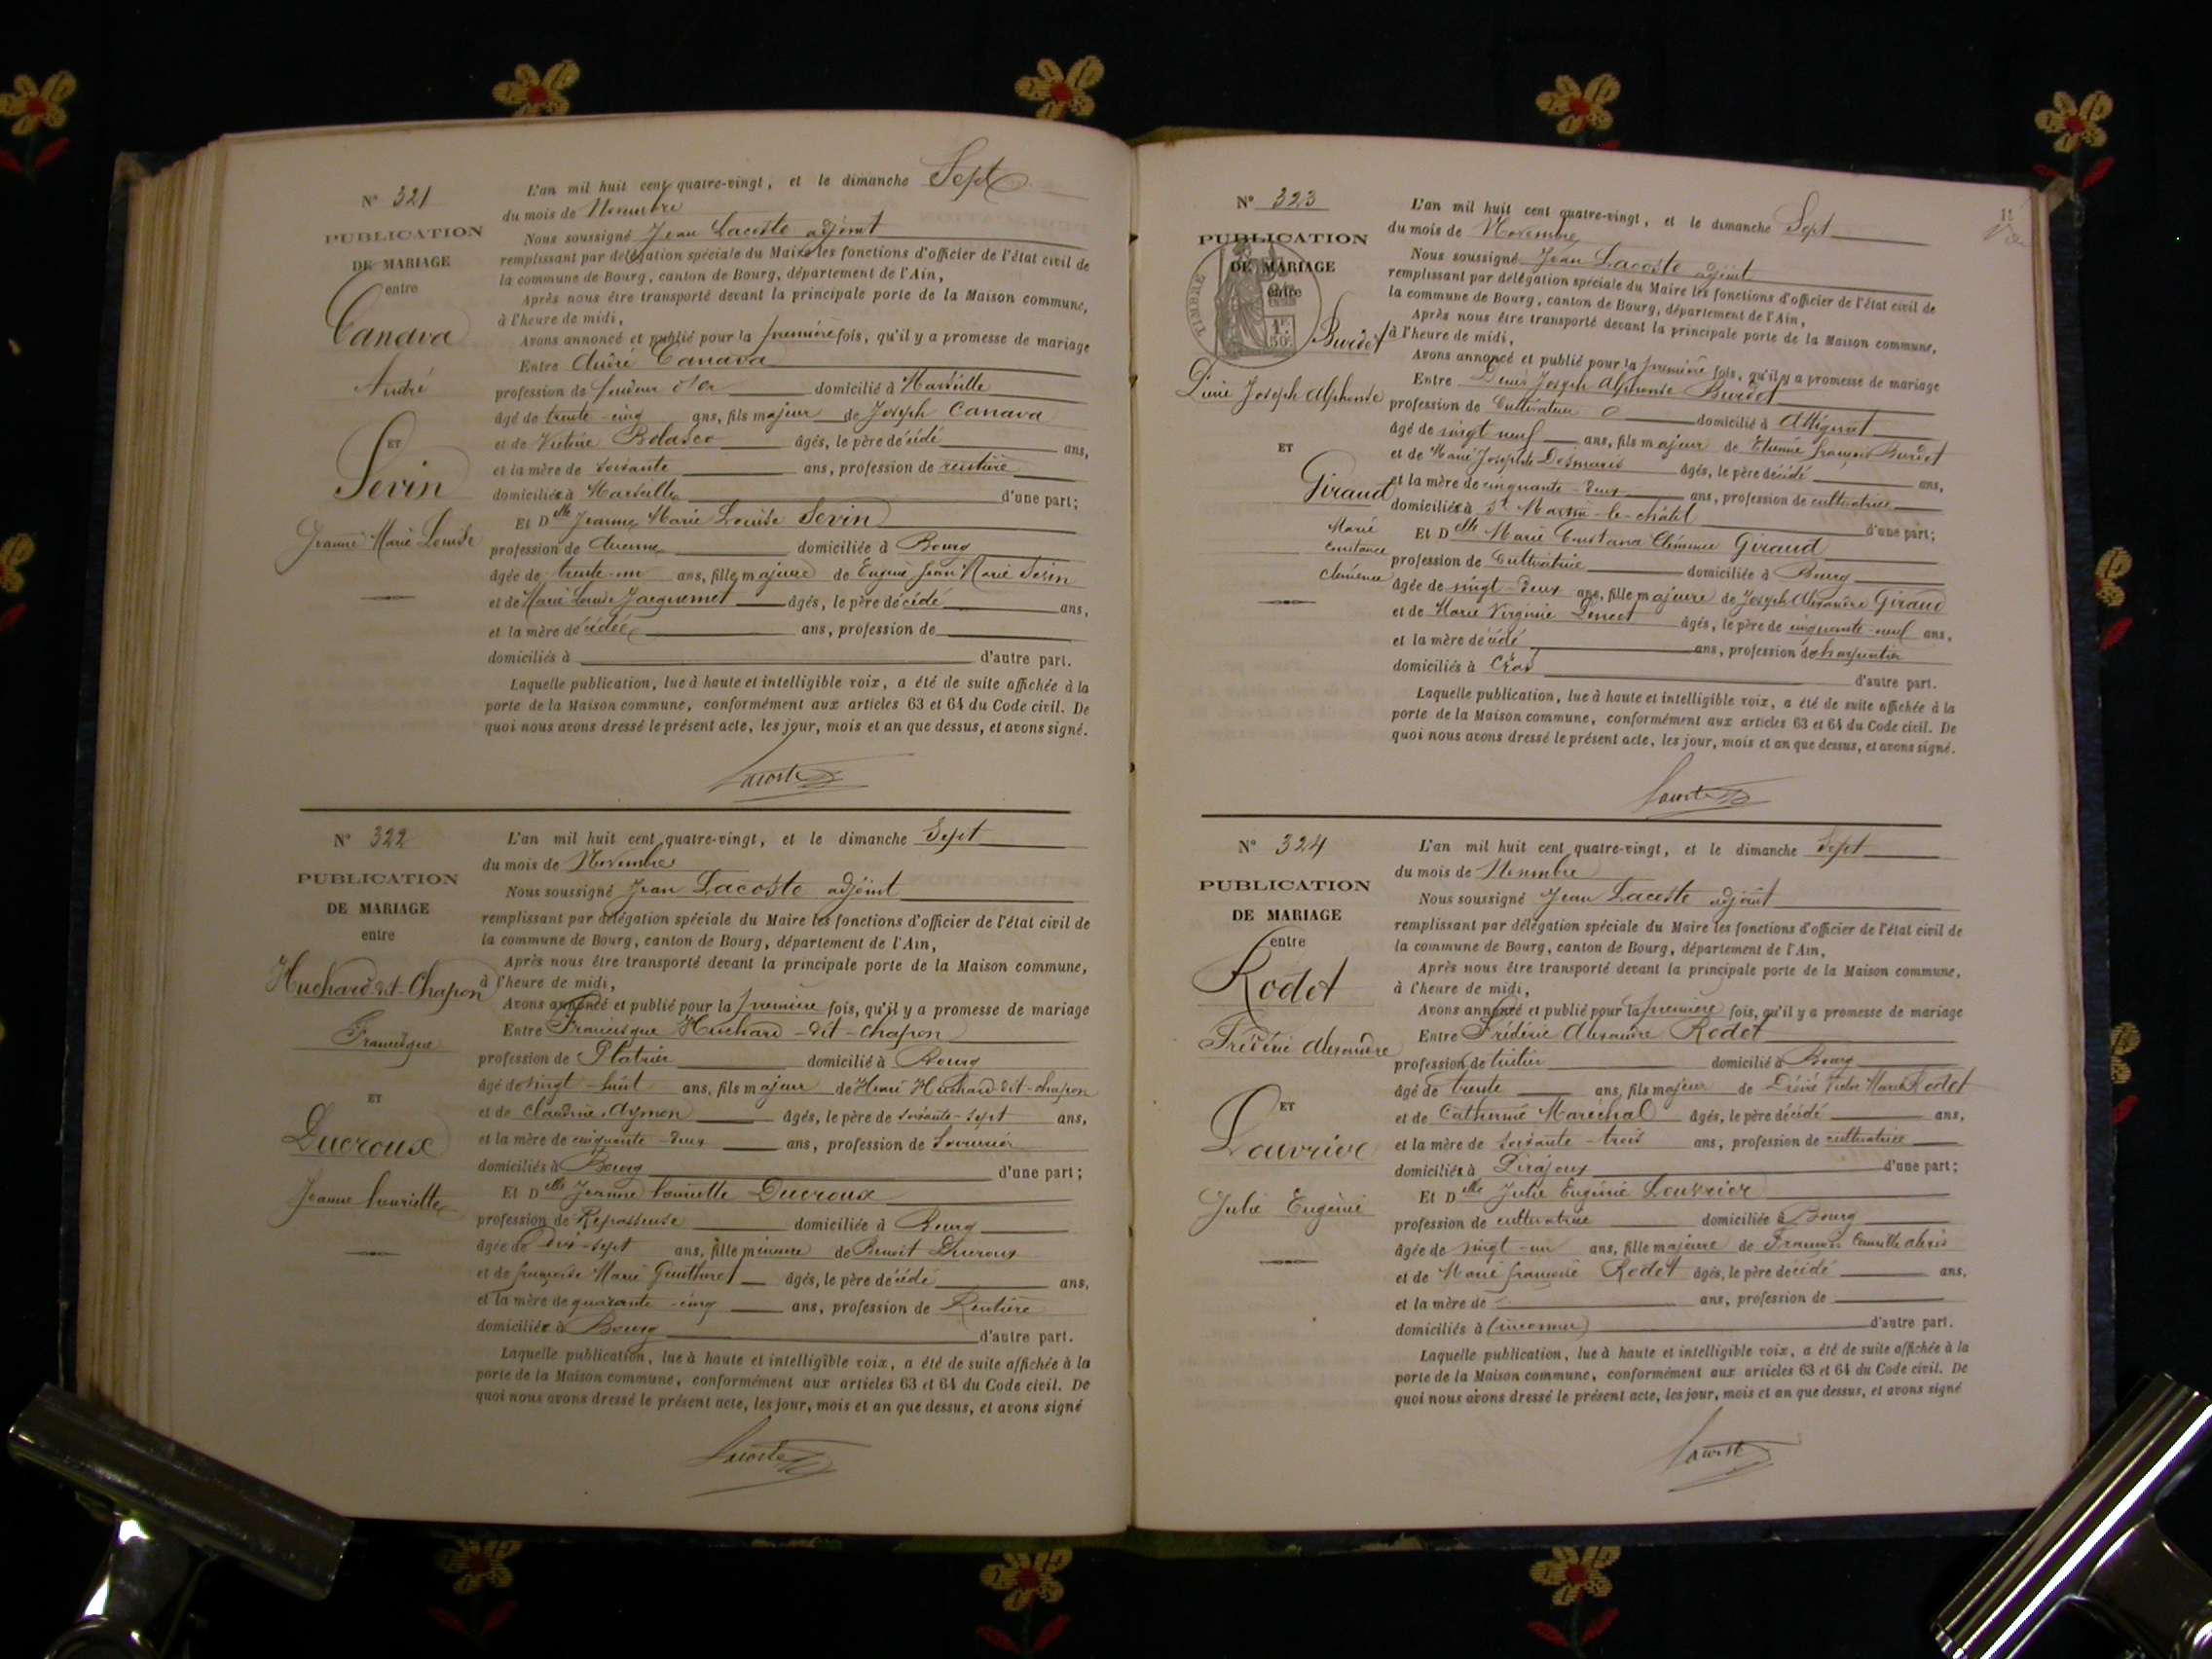 N° 321
PUBLICATION
DE MARIAGE
entre
Canava
André
ET
Sevin
Jeanne Marie Louise
L'an mil huit cent quatre-vingt, et le dimanche Sept
du mois de Novembre
Nous soussigné Jean Lacoste adjoint
remplissant par délégation spéciale du Maire les fonctions d'officier de l'état civil de
la commune de Bourg, canton de Bourg, département de l'Ain,
Après nous être transporté devant la principale porte de la Maison commune,
à l'heure de midi,
Avons annoncé et publié pour la première fois, qu'il y a promesse de mariage
Entre André Canava
profession de fondeur d'or domicilié à Marseille
âgé de trente-cinq ans, fils majeur de Joseph Canava
et de Victoire âgés, le père décédé ans,
et la mère de soixante ans, profession de rentière
domiciliés à Marseille d'une part;
Et Dlle Jeanne Marie Louise Sevin
profession de domiciliée à Bourg
âgée de trente-un ans, fille majeure de Eugène Jean Marie Sevin
et de Marie Louise Jacquemet âgés, le père décédé ans,
et la mère décédée ans, profession de
domiciliés à d'autre part.
Laquelle publication, lue à haute et intelligible voix, a été de suite affichée à la
porte de la Maison commune, conformément aux articles 63 et 64 du Code civil. De
quoi nous avons dressé le présent acte, les jour, mois et an que dessus, et avons signé.
Lacoste
N° 322
PUBLICATION
DE MARIAGE
entre
Huchard-dit-Chapon
Francisque
ET
Ducroux
Jeanne henriette
L'an mil huit cent quatre-vingt, et le dimanche Sept
du mois de Novembre
Nous soussigné Jean Lacoste adjoint
remplissant par délégation spéciale du Maire les fonctions d'officier de l'état civil de
la commune de Bourg, canton de Bourg, département de l'Ain,
Après nous être transporté devant la principale porte de la Maison commune,
à l'heure de midi,
Avons annoncé et publié pour la première fois, qu'il y a promesse de mariage
Entre Francisque Huchard-dit-Chapon
profession de Platrier domicilié à Bourg
âgé de vingt-huit ans, fils majeur de Henri Huchard-dit-chapon
et de Claudine Aymon âgés, le père de soixante-sept ans,
et la mère de cinquante-deux ans, profession de
domiciliés à Bourg d'une part;
Et Dlle Jeanne henriette Ducroux
profession de Repasseuse domiciliée à Bourg
âgée de dix-sept ans, fille mineure de Benoit Ducroux
et de françoise Marie âgés, le père décédé ans,
et la mère de quarante-cinq ans, profession de Rentière
domiciliée à Bourg d'autre part.
Laquelle publication, lue à haute et intelligible voix, a été de suite affichée à la
porte de la Maison commune, conformément aux articles 63 et 64 du Code civil. De
quoi nous avons dressé le présent acte, les jour, mois et an que dessus, et avons signé
Lacoste
N° 323
PUBLICATION
DE MARIAGE
entre
TIMBRE
Burdet
Joseph Alphonse
ET
Giraud
Marie
Constance
Clémence
L'an mil huit cent quatre-vingt, et le dimanche Sept
du mois de Novembre
Nous soussigné Jean Lacoste adjoint
remplissant par délégation spéciale du Maire les fonctions d'officier de l'état civil de
la commune de Bourg, canton de Bourg, département de l'Ain,
Après nous être transporté devant la principale porte de la Maison commune,
à l'heure de midi,
Avons annoncé et publié pour la première fois, qu'il y a promesse de mariage
Entre Joseph Alphonse Burdet
profession de Cultivateur domicilié à Attignat
âgé de vingt neuf ans, fils majeur de Etienne françois Burdet
et de Marie Josephte Desmaris âgés, le père décédé ans,
et la mère de cinquante-deux ans, profession de cultivatrice
domiciliés à St Martin-le-châtel d'une part;
Et Delle Marie Constance Clémence Giraud
profession de Cultivatrice domiciliée à Bourg
âgée de vingt-deux ans, fille majeure de Joseph Alexandre Giraud
et de Marie Virginie âgés, le père de cinquante-neuf ans,
et la mère décédé ans, profession de charpentier
domiciliés à Cras d'autre part.
Laquelle publication, lue à haute et intelligible voix, a été de suite affichée à la
porte de la Maison commune, conformément aux articles 63 et 64 du Code civil. De
quoi nous avons dressé le présent acte, les jour, mois et an que dessus, et avons signé.
Lacoste
N° 324
PUBLICATION
DE MARIAGE
entre
Rodet
Frédéric Alexandre
ET
Louvrier
Julie Eugénie
L'an mil huit cent quatre-vingt, et le dimanche Sept
du mois de Novembre
Nous soussigné Jean Lacoste adjoint
remplissant par délégation spéciale du Maire les fonctions d'officier de l'état civil de
la commune de Bourg, canton de Bourg, département de l'Ain,
Après nous être transporté devant la principale porte de la Maison commune,
à l'heure de midi,
Avons annoncé et publié pour la première fois, qu'il y a promesse de mariage
Entre Frédéric Alexandre Rodet
profession de domicilié à Bourg
âgé de trente ans, fils majeur de Désiré Rodet
et de Catherine Maréchal âgés, le père décédé ans,
et la mère de soixante-trois ans, profession de cultivatrice
domiciliés à Pirajoux d'une part;
Et Dlle Julie Eugénie Louvrier
profession de cultivatrice domiciliée à Bourg
âgée de vingt-un ans, fille majeure de François Camille alexis
et de Marie françoise Rodet âgés, le père décédé ans,
et la mère de ans, profession de
domiciliés à (inconnu) d'autre part.
Laquelle publication, lue à haute et intelligible voix, a été de suite affichée à la
porte de la Maison commune, conformément aux articles 63 et 64 du Code civil. De
quoi nous avons dressé le présent acte, les jour, mois et an que dessus, et avons signé
Lacoste